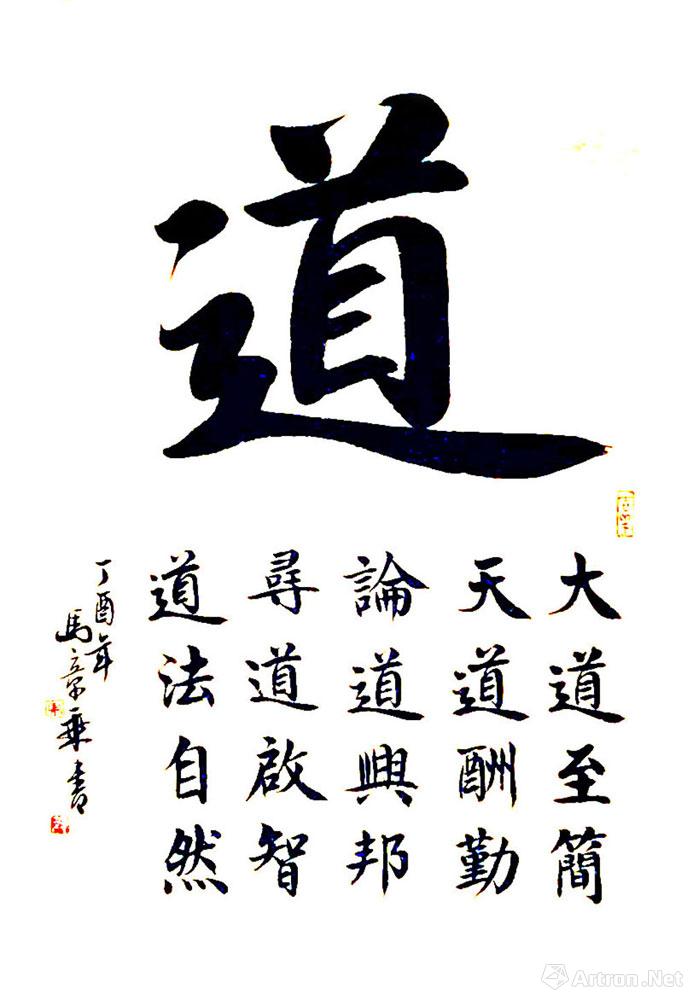 道
大道至簡
天道酬勤
論道興邦
尋道啟智
道法自然
丁酉年
馬章乘書
Artron.Net